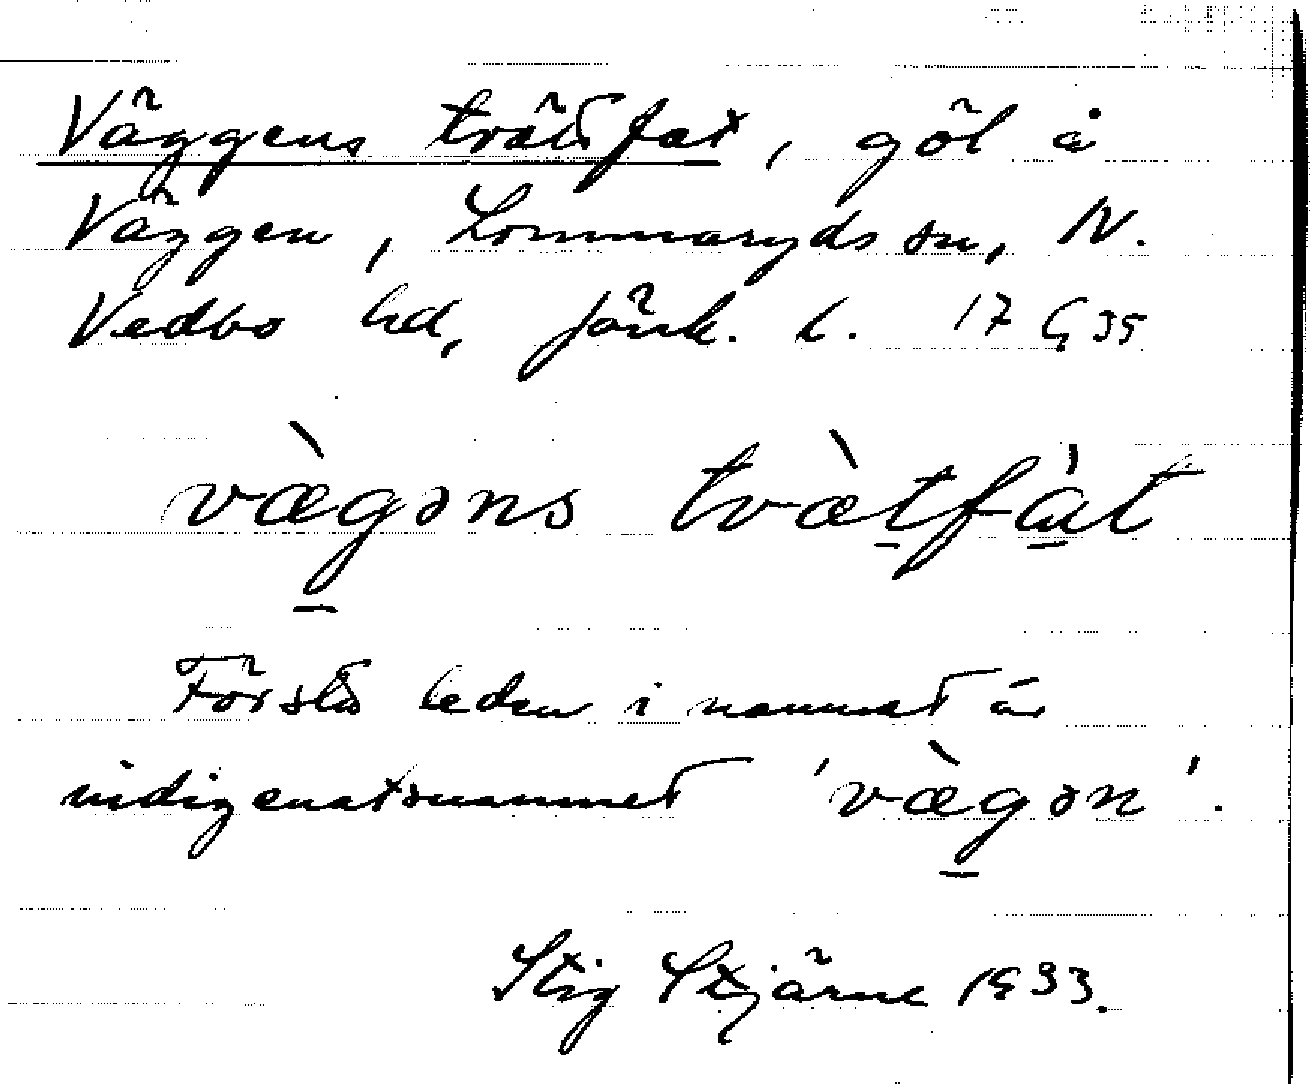 Väggens tvättfat, göl å
Väggen, Lommaryds sn, N.
Vedbo hd, Jönk. l. 17 G 35
væ̀gəns tvæ̀tfàt
Första leden i namnet är
indigenatsnamnet 'væ̀gən'.
Stig Stjärne 1933.